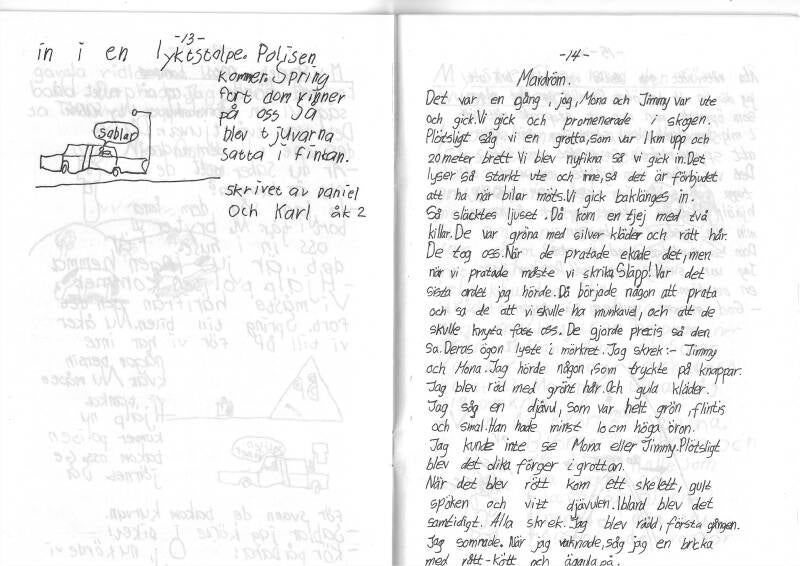 -13-
in i en lyktstolpe. Polisen
kommer. Spring
fort dom rinner
på oss Så
blev tjuvarna
satta i finkan.
sablar
skrivet av Daniel
Och Karl åk 2
-14-
Mardröm.
Det var en gång, jag, Mona och Jimmy var ute
och gick. Vi gick och promenerade i skogen.
Plötsligt såg vi en grotta, som var 1 km upp och
20 meter brett Vi blev nyfikna så vi gick in. Det
lyser så starkt ute och inne, så det är förbjudet
att ha när bilar möts. Vi gick baklänges in.
Så släcktes ljuset. Då kom en tjej med två
killar. De var gröna med silver kläder och rött hår.
De tog oss. När de pratade ekade det, men
när vi pratade måste vi skrika. Släpp! Var det
sista ordet jag hörde. Då började någon att prata
och sa de att vi skulle ha munkavel, och att de
skulle knyta fast oss. De gjorde precis så den
sa. Deras ögon lyste i mörkret. Jag skrek:- Jimmy
och Mona. Jag hörde någon, som tryckte på knappar.
Jag blev röd med grönt hår. Och gula kläder.
Jag såg en djävul, som var helt grön, flintis
och smal. Han hade minst 10 cm höga öron.
Jag kunde inte se Mona eller Jimmy. Plötsligt
blev det olika färger i grottan.
När det blev rött kom ett skelett, gult
spöken och vitt djävulen. Ibland blev det
samtidigt. Alla skrek. Jag blev rädd, första gången.
Jag somnade. När jag vaknade, såg jag en bricka
med rått-kött och äggula på.